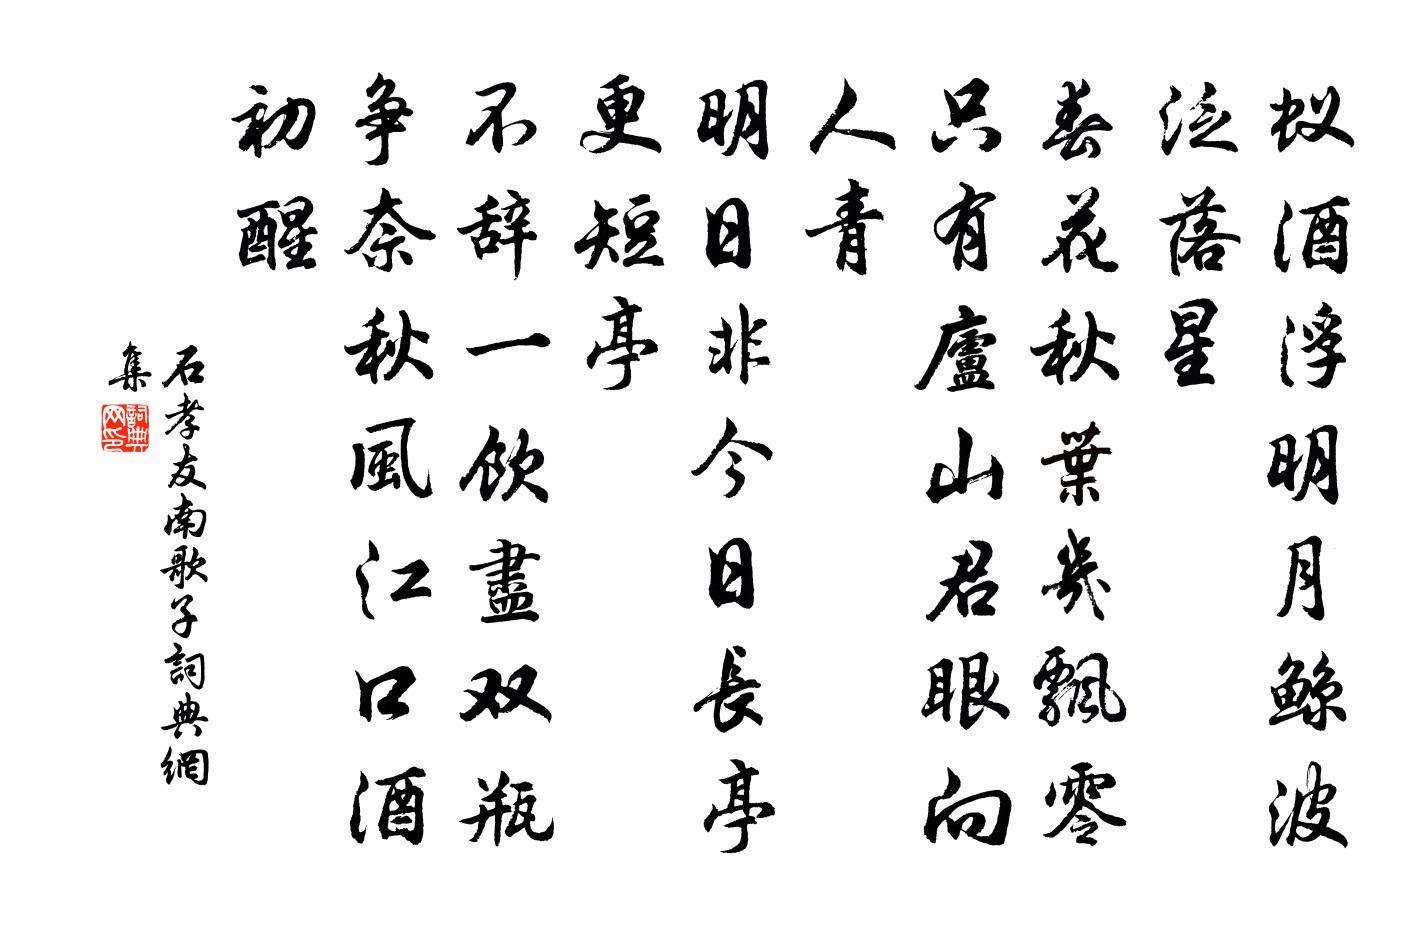 蚁酒浮明月鲸波
泛落星
春花秋葉幾飄零
只有廬山君眼向
人青
明日非今日長亭
更短亭
不辞一飲盡双瓶
争奈秋風江口酒
初醒
石孝友南歌子詞典網
集
詞典
网印